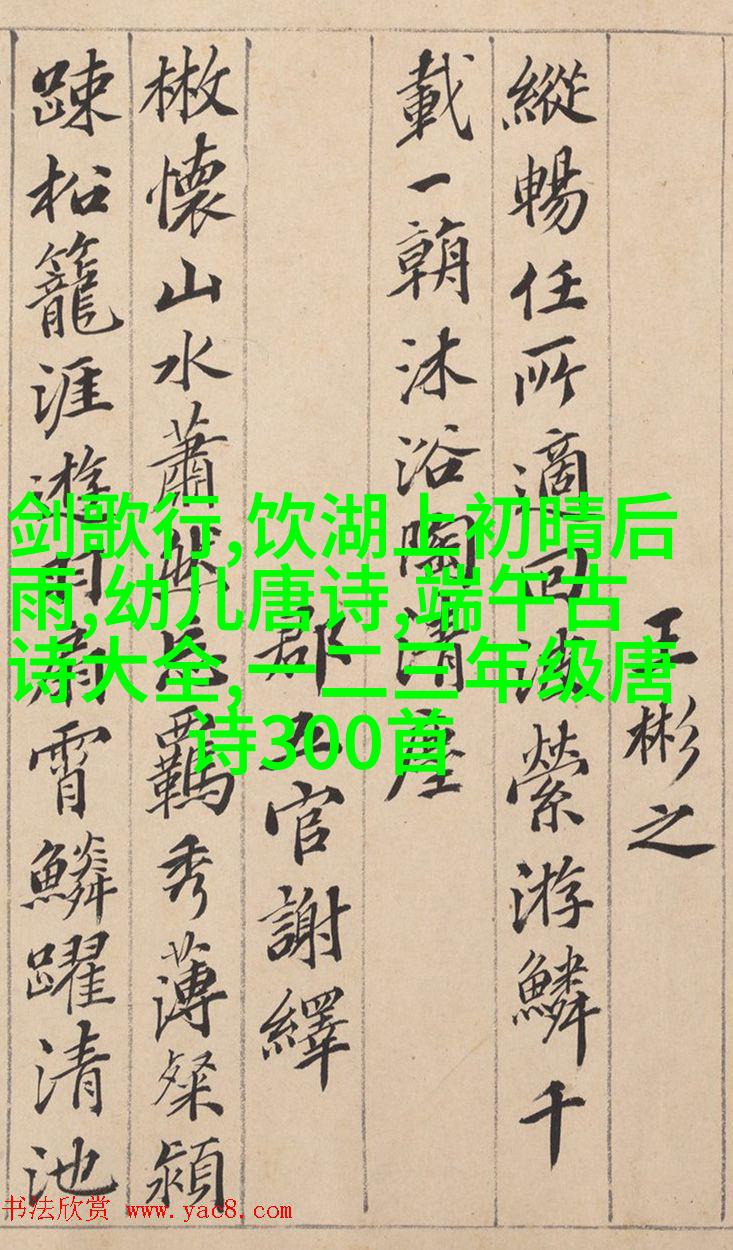 王彬之
縱暢任所適回波縈游鱗千
載一朝沐浴陶清塵
郡五官謝繹
散懷山水蕭然忘羈秀薄粲穎
踈松籠涯遊羽扇霄鱗躍清池
剑歌行,饮湖上初晴后
雨,幼儿唐诗,端午古
诗大全,一二三年级唐
诗300首
书法欣赏 www.yac8.com